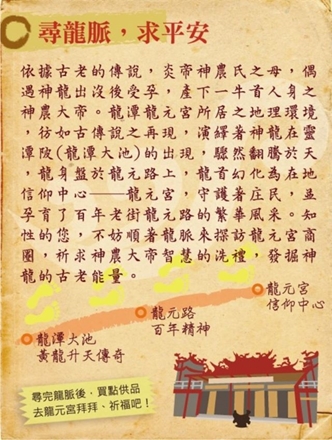 尋龍脈，求平安
依據古老的傳說，炎帝神農氏之母，偶
遇神龍出沒後受孕，產下一牛首人身之
神農大帝。龍潭龍元宮所居之地理環境
，彷如古傳說之再現，演繹著神龍在靈
潭陂(龍潭大池)的出現，驟然翻騰於天
，龍身盤於龍元路上，龍首幻化為在地
信仰中心——龍元宮，守護著庄民，並
孕育了百年老街龍元路的繁華風采。知
性的您，不妨順著龍脈來探訪龍元宮商
圈，祈求神農大帝智慧的洗禮，發掘神
龍的古老能量。
龍元宮
信仰中心
龍元路
百年精神
龍潭大池
黃龍升天傳奇
尋完龍脈後，買點供品
去龍元宮拜拜、祈福吧！